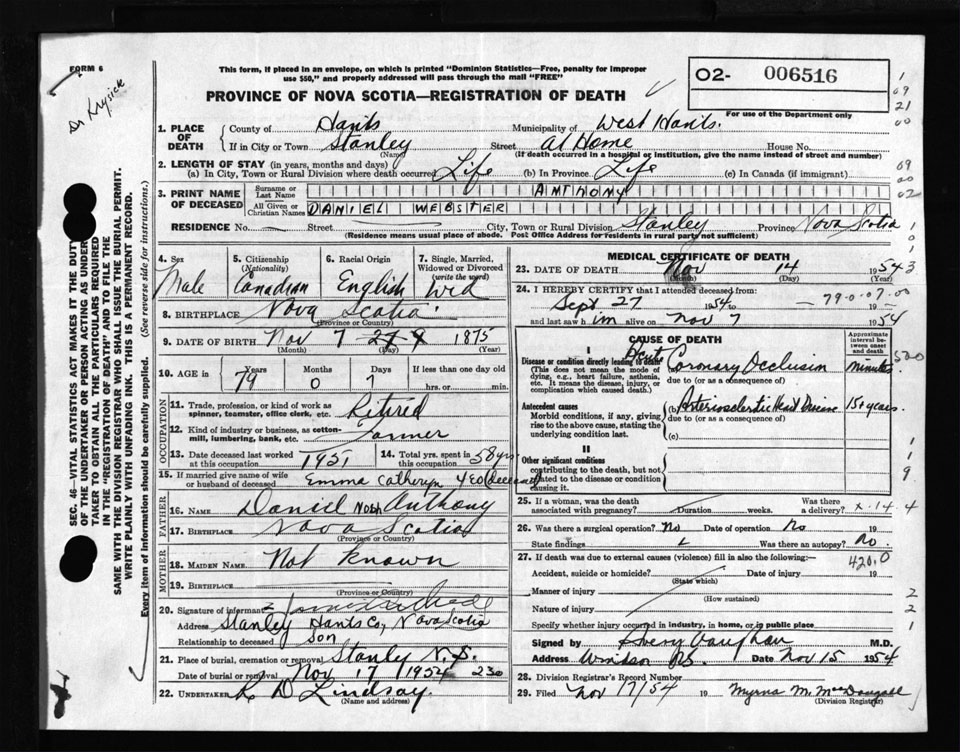 FORM 6
Dr Krysick
This form, if placed in an envelope, on which is printed "Dominion Statistics—Free, penalty for improper
use $50," and properly addressed will pass through the mail "FREE"
PROVINCE OF NOVA SCOTIA—REGISTRATION OF DEATH
02- 006516
For use of the Department only
1. PLACE OF DEATH County of Hants Municipality of West Hants.
If in City or Town Stanley Street At Home House No.
(Name) (If death occurred in a hospital or institution, give the name instead of street and number)
2. LENGTH OF STAY (in years, months and days)
(a) In City, Town or Rural Division where death occurred Life (b) In Province Life (c) In Canada (if immigrant)
3. PRINT NAME OF DECEASED Surname or Last Name ANTHONY
All Given or Christian Names DANIEL WEBSTER
RESIDENCE No. Street City, Town or Rural Division Stanley Province Nova Scotia
(Residence means usual place of abode. Post Office Address for residents in rural parts not sufficient)
SEC. 46 - VITAL STATISTICS ACT MAKES IT THE DUTY
OF THE UNDERTAKER OR PERSON ACTING AS UNDER-
TAKER TO OBTAIN ALL THE PARTICULARS REQUIRED
IN THE "REGISTRATION OF DEATH" AND TO FILE THE
SAME WITH THE DIVISION REGISTRAR WHO SHALL ISSUE THE BURIAL PERMIT.
WRITE PLAINLY WITH UNFADING INK. THIS IS A PERMANENT RECORD.
Every item of information should be carefully supplied. (See reverse side for instructions.)
4. Sex Male
5. Citizenship (Nationality) Canadian
6. Racial Origin English
7. Single, Married, Widowed or Divorced (write the word) Wid
8. BIRTHPLACE Nova Scotia
(Province or Country)
9. DATE OF BIRTH Nov 7 1875
(Month) (Day) (Year)
10. AGE in Years 79 Months 0 Days 7 If less than one day old hrs. or min.
OCCUPATION
11. Trade, profession, or kind of work as spinner, teamster, office clerk, etc. Retired
12. Kind of industry or business, as cotton-mill, lumbering, bank, etc. Farmer
13. Date deceased last worked at this occupation 1951
14. Total yrs. spent in this occupation 58 yrs
15. If married give name of wife or husband of deceased Emma Catheryn (deceased)
FATHER
16. NAME Daniel Noah Anthony
17. BIRTHPLACE Nova Scotia
(Province or Country)
MOTHER
18. MAIDEN NAME Not Known
19. BIRTHPLACE
(Province or Country)
20. Signature of informant
Address Stanley Hants Co, Nova Scotia
Relationship to deceased son
21. Place of burial, cremation or removal Stanley N.S.
Date of burial or removal Nov 17 1954 230
22. UNDERTAKER R D Lindsay.
(Name and address)
MEDICAL CERTIFICATE OF DEATH
23. DATE OF DEATH Nov 14 1954
(Month) (Day)
24. I HEREBY CERTIFY that I attended deceased from:
Sept 27 1954 to
and last saw him alive on Nov 7 1954
CAUSE OF DEATH
Approximate interval between onset and death
I
Disease or condition directly leading to death
(This does not mean the mode of dying, e.g., heart failure, asthenia, etc. It means the disease, injury, or complication which caused death.)
Acute Coronary Occlusion minutes
due to (or as a consequence of)
Antecedent causes
Morbid conditions, if any, giving rise to the above cause, stating the underlying condition last.
(b) Arteriosclerotic Heart Disease 15+ years.
due to (or as a consequence of)
(c)
II
Other significant conditions
contributing to the death, but not related to the disease or condition causing it.
25. If a woman, was the death associated with pregnancy? Duration weeks. Was there a delivery?
26. Was there a surgical operation? No Date of operation No 19
State findings Was there an autopsy? No.
27. If death was due to external causes (violence) fill in also the following:
Accident, suicide or homicide? Date of injury 19
(State which)
Manner of injury
(How sustained)
Nature of injury
Specify whether injury occurred in industry, in home, or in public place
Signed by Vaughan M.D.
Address Windsor NS. Date Nov 15 1954
28. Division Registrar's Record Number
29. Filed Nov 17/54 19 Myrna M. MacDougall
(Division Registrar)
1
09
21
00
09
00
02
1
0
1
3
79-0-07-00
500
1
9
x-14.4
420.0
2
2
1